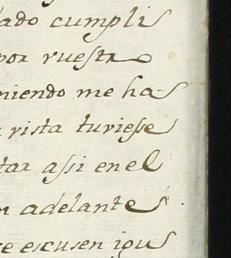 ado cumpli
por vuestro
niendo me ha-
vista tuviesse
tar assi en el
n adelante
se escusen igus